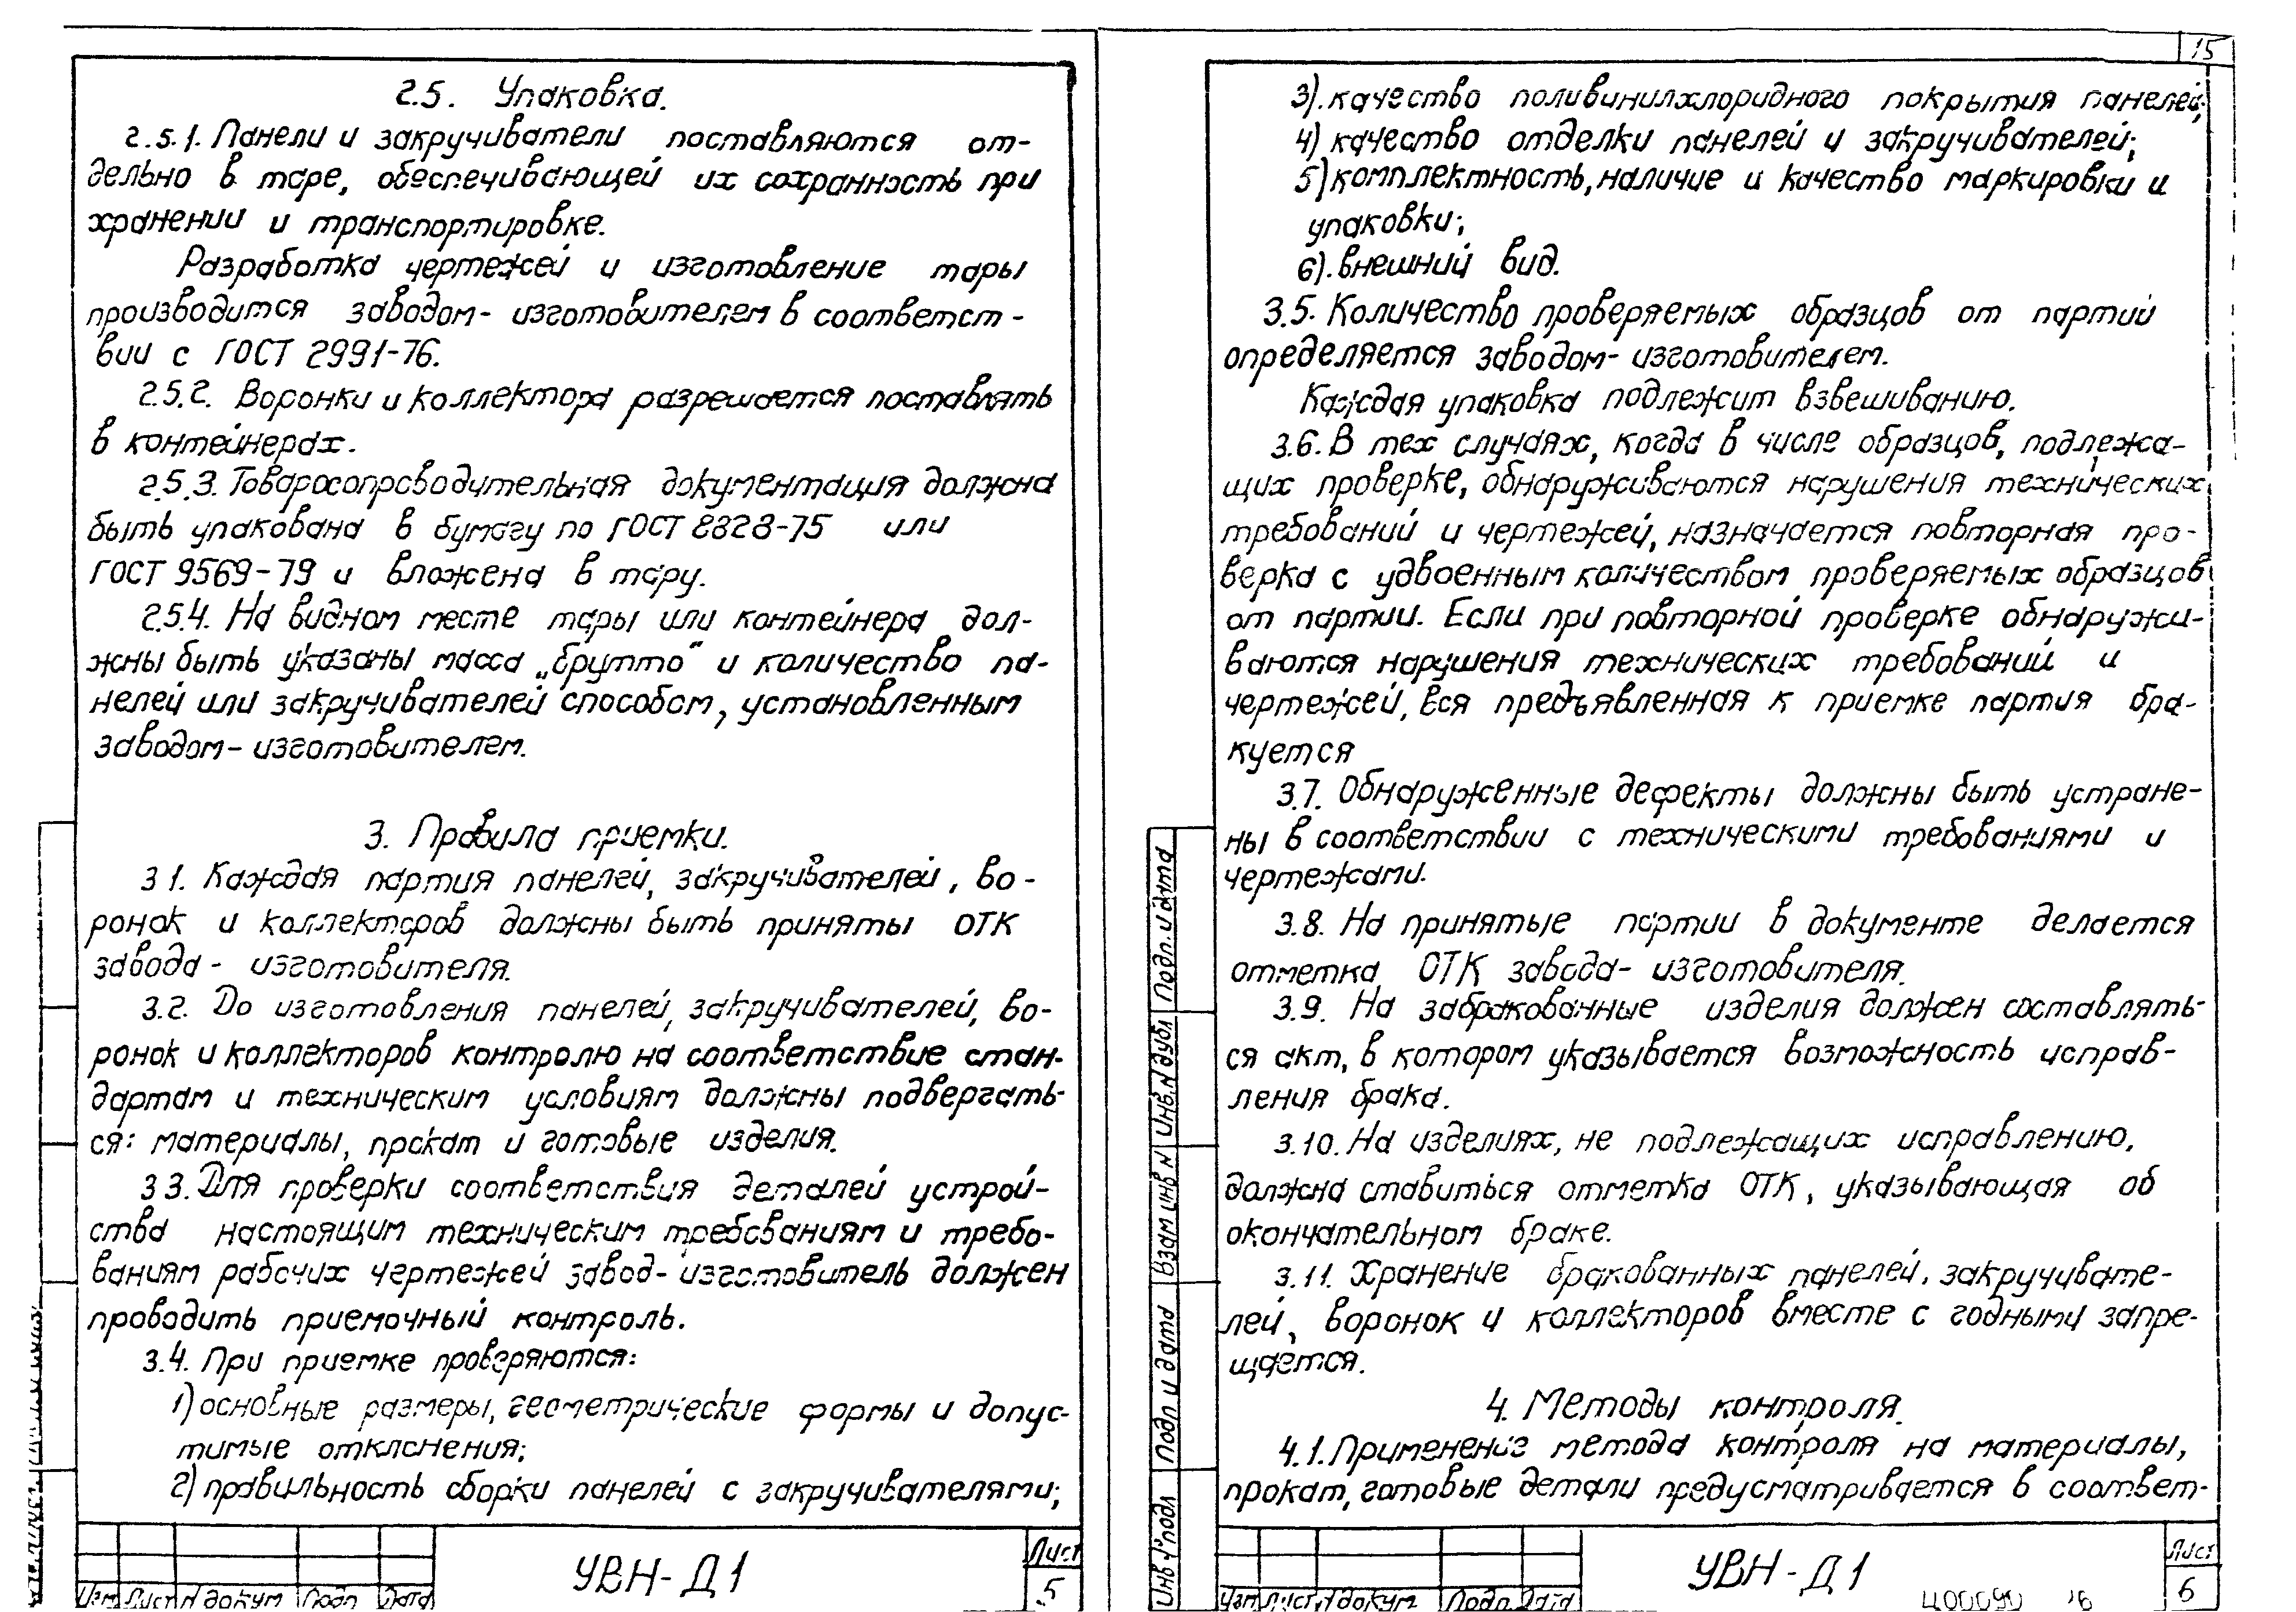 2.5. Упаковка.
2.5.1. Панели и закручиватели поставляются от-
дельно в таре, обеспечивающей их сохранность при
хранении и транспортировке.
Разработка чертежей и изготовление тары
производится заводом-изготовителем в соответст-
вии с ГОСТ 2991-76.
2.5.2. Воронки и коллектора разрешается поставлять
в контейнерах.
2.5.3. Товаросопроводительная документация должна
быть упакована в бумагу по ГОСТ 8828-75 или
ГОСТ 9569-79 и вложена в тару.
2.5.4. На видном месте тары или контейнера дол-
жны быть указаны масса „брутто" и количество па-
нелей или закручивателей способом, установленным
заводом-изготовителем.
3. Правила приемки.
3 1. Каждая партия панелей, закручивателей, во-
ронок и коллекторов должны быть приняты ОТК
завода-изготовителя.
3.2. До изготовления панелей, закручивателей, во-
ронок и коллекторов контролю на соответствие стан-
дартам и техническим условиям должны подвергать-
ся: материалы, прокат и готовые изделия.
3 3. Для проверки соответствия деталей устрой-
ства настоящим техническим требованиям и требо-
ваниям рабочих чертежей завод-изготовитель должен
проводить приемочный контроль.
3.4. При приемке проверяются:
1) основные размеры, геометрические формы и допус-
тимые отклонения;
2) правильность сборки панелей с закручивателями;
УВН-Д1
Изм Лист N докум Подп Дата
Лист
5
15
3). качество поливинилхлоридного покрытия панелей;
4) качество отделки панелей и закручивателей;
5) комплектность, наличие и качество маркировки и
упаковки;
6). внешний вид.
3.5. Количество проверяемых образцов от партий
определяется заводом-изготовителем.
Каждая упаковка подлежит взвешиванию.
3.6. В тех случаях, когда в числе образцов, подлежа-
щих проверке, обнаруживаются нарушения технических
требований и чертежей, назначается повторная про-
верка с удвоенным количеством проверяемых образцов
от партии. Если при повторной проверке обнаружи-
ваются нарушения технических требований и
чертежей, вся предъявленная к приемке партия бра-
куется
3.7. Обнаруженные дефекты должны быть устране-
ны в соответствии с техническими требованиями и
чертежами.
3.8. На принятые партии в документе делается
отметка ОТК завода-изготовителя.
3.9. На забракованные изделия должен составлять-
ся акт, в котором указывается возможность исправ-
ления брака.
3.10. На изделиях, не подлежащих исправлению,
должна ставиться отметка ОТК, указывающая об
окончательном браке.
3.11. Хранение бракованных панелей, закручивате-
лей, воронок и коллекторов вместе с годными запре-
щается.
4. Методы контроля.
4.1. Применение метода контроля на материалы,
прокат, готовые детали предусматривается в соответ-
Подп. и дата
Инв.N дубл
Взам инв N
Подп и дата
Инв N подл
УВН-Д1
Изм Лист N докум Подп Дата
Лист
6
Ц00090 16